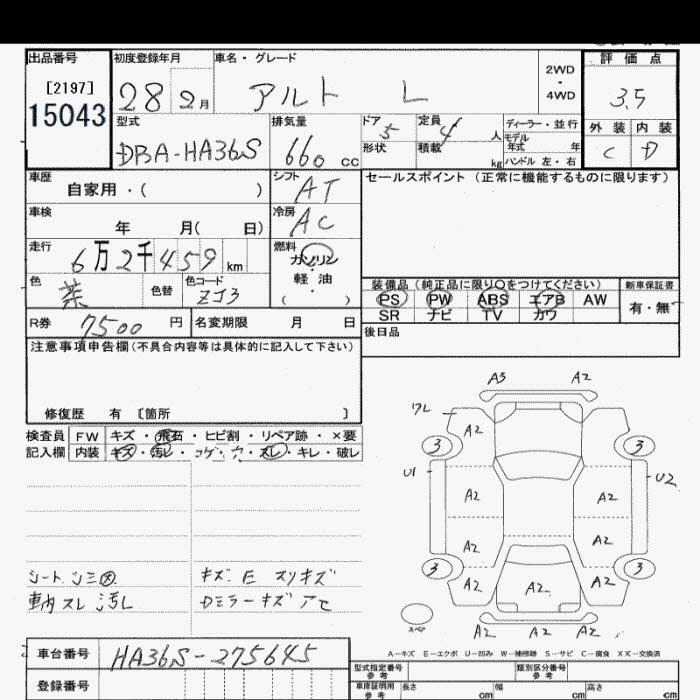 出品番号 初度登録年月 車名・グレード 評価点
[2197] 15043 28 2月 アルト L 2WD・4WD 3.5
型式 排気量 ドア 5 定員 4 人 ディーラー・並行 外装 内装
DBA-HA36S 660 cc 形状 積載 kg モデル年式 年 ハンドル 左・右 C D
車歴 自家用・( ) シフト AT セールスポイント (正常に機能するものに限ります)
車検 年 月( 日) 冷房 AC
走行 6万2千459km 燃料 ガソリン・軽油 ( ・ )
色 茶 色替 色コード ZJ3 装備品 (純正品に限り○をつけてください) 新車保証書
PS PW ABS エアB AW 有・無
SR ナビ TV カワ
R券 7500円 名変期限 月 日 後日品
注意事項申告欄 (不具合内容等は具体的に記入して下さい)
修復歴 有 〔箇所 〕
検査員 FW キズ・飛石・ヒビ割・リペア跡・×要
記入欄 内装 キズ・汚レ・コゲ・穴・スレ・キレ・破レ
A3 A2
ワレ A2
3 3
U1 U2
A2 A2
A2 A2
3 3
A2 A2 A2
A2 A2 A2
スペア
シート シミ大 キズ.E スリキズ
車内スレ 汚レ Dミラーキズ アセ
A-キズ E-エクボ U-凹み W-補修跡 S-サビ C-腐食 XX-交換済
車台番号 HA36S-275645
登録番号
型式指定番号 類別区分番号
参考 参考
車庫証明用 長さ cm 幅 cm 高さ cm
参考